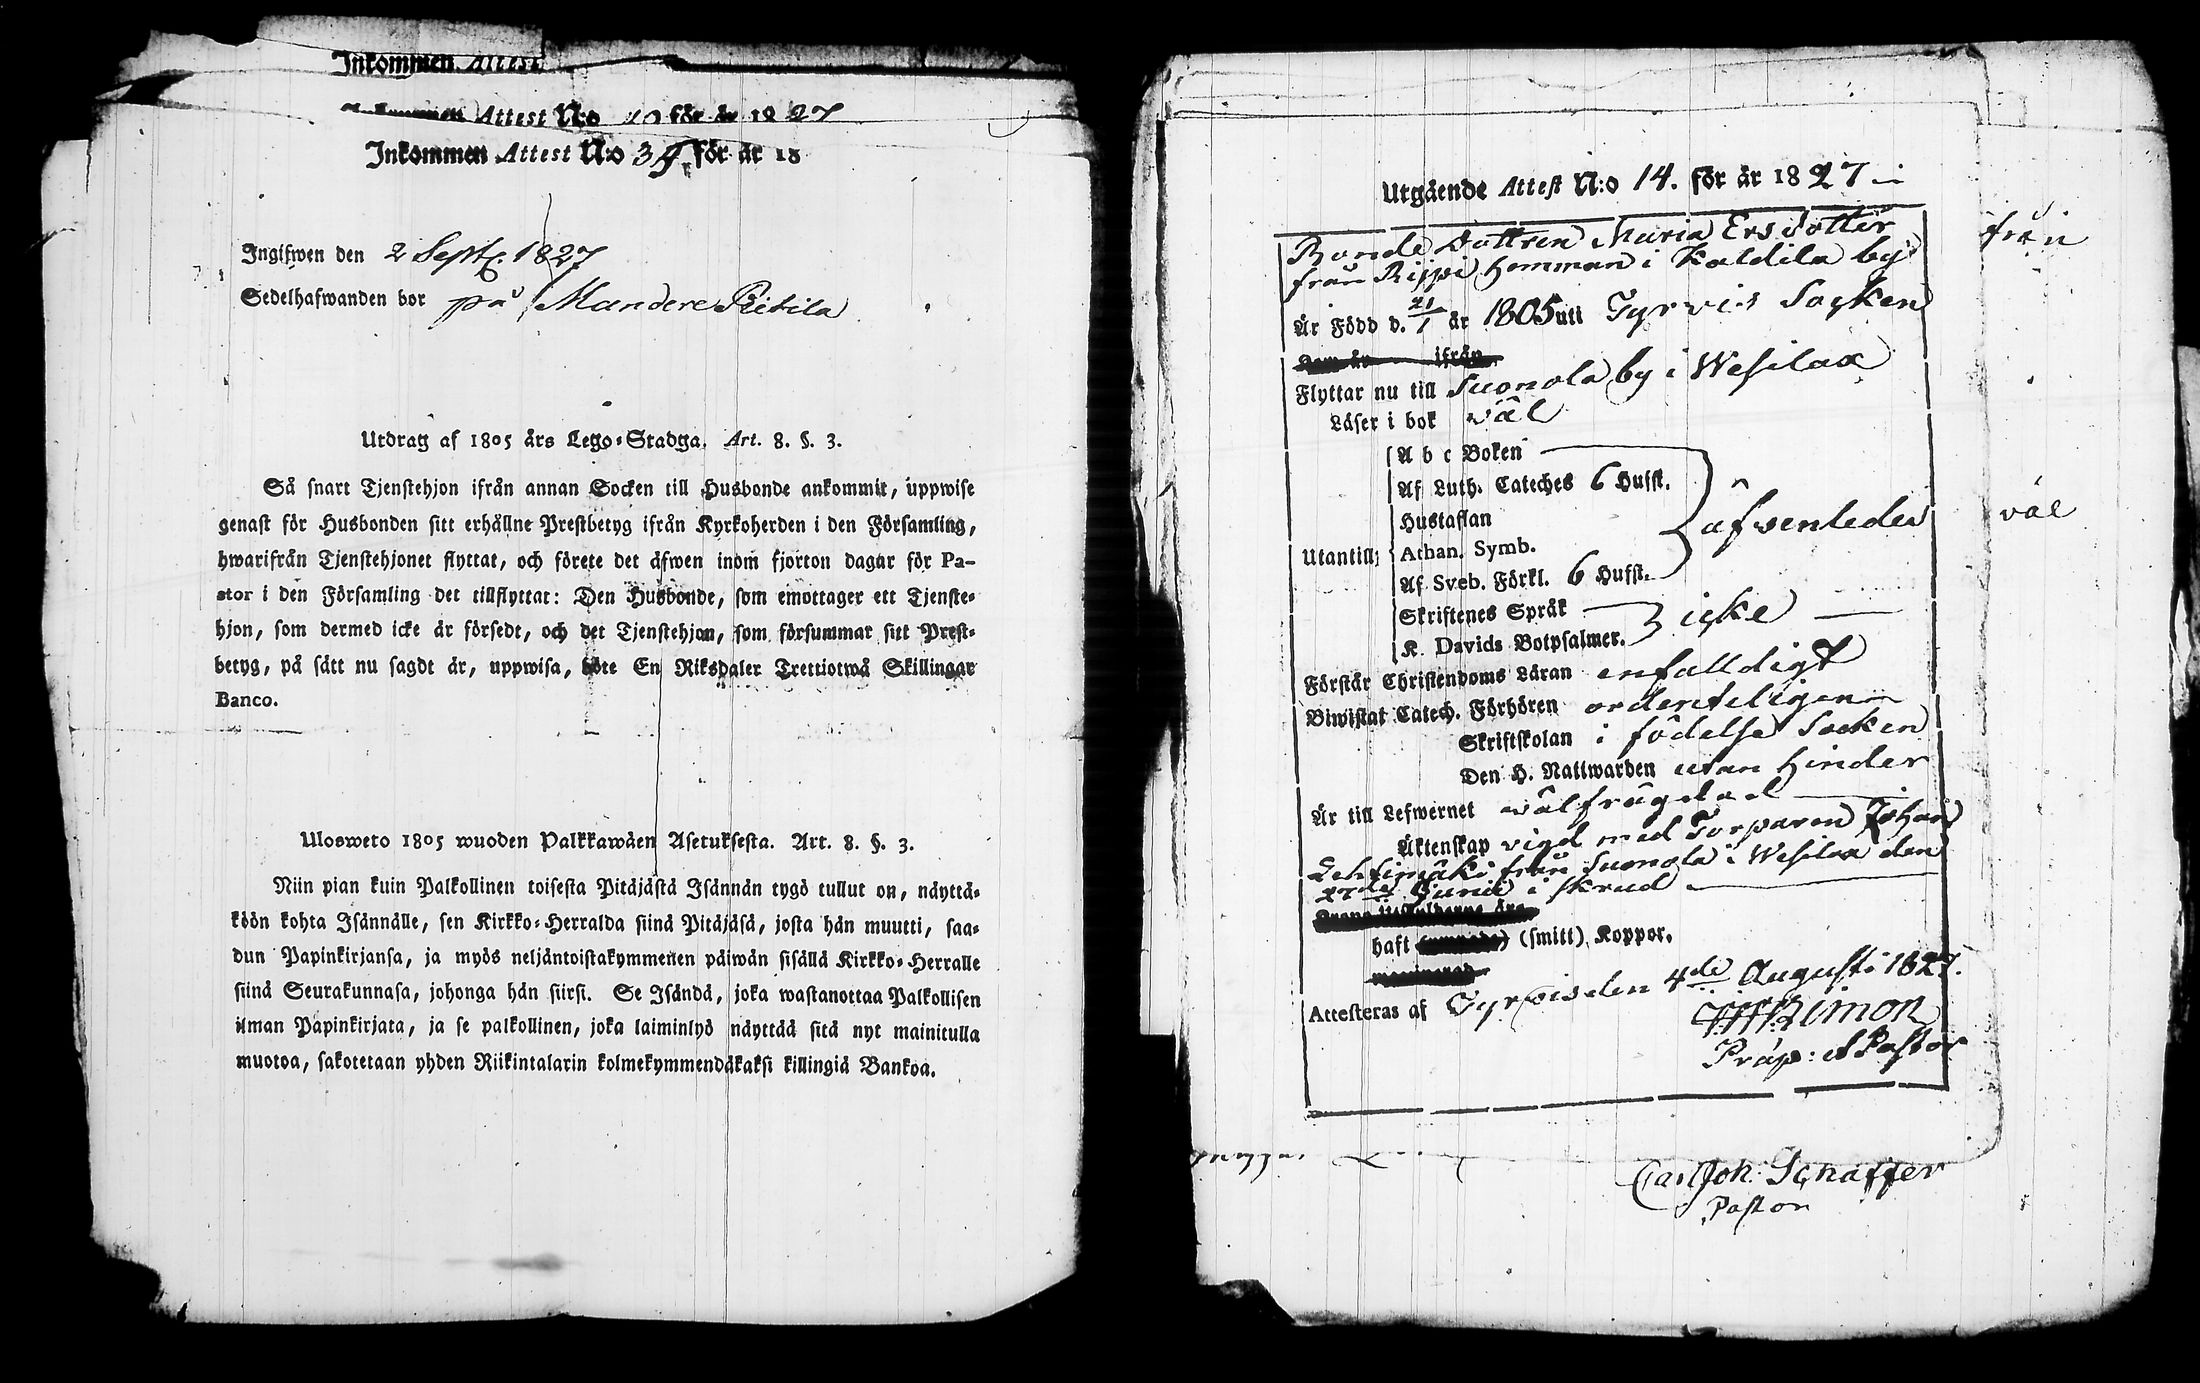 Inkommen Attest
Attest N:o 10 för år 1827
Inkommen Attest N:o 34 för år 18
Ingifwen den 2 Sept. 1827
Sedelhafwanden bor på Mandere Pietila
Utdrag af 1805 års Lego-Stadga. Art. 8. §. 3.
Så snart Tjenstehjon ifrån annan Socken till Husbonde ankommit, uppwise
genast för Husbonden sitt erhållne Prestbetyg ifrån Kyrkoherden i den Församling,
hwarifrån Tjenstehjonet flyttat, och förete det äfwen inom fjorton dagar för Pa-
stor i den Församling det tillflyttat: Den Husbonde, som emottager ett Tjenste-
hjon, som dermed icke är försedt, och det Tjenstehjon, som försummar sitt Prest-
betyg, på sätt nu sagdt är, uppwisa, böte En Riksdaler Trettiotwå Skillingar
Banco.
Ulosweto 1805 wuoden Palkkawäen Asetuksesta. Art. 8. §. 3.
Niin pian kuin Palkollinen toisesta Pitäjästä Isännän tygö tullut on, näyttä-
köön kohta Isännälle, sen Kirkko-Herralda siinä Pitäjäsä, josta hän muutti, saa-
dun Papinkirjansa, ja myös neljäntoistakymmenen päiwän sisällä Kirkko-Herralle
siinä Seurakunnasa, johonga hän siirsi. Se Isändä, joka wastanottaa Palkollisen
ilman Papinkirjata, ja se palkollinen, joka laiminlyö näyttää sitä nyt mainitulla
muotoa, sakotetaan yhden Riikintalarin kolmekymmendäkaksi killingiä Bankoa.
Utgående Attest N:o 14. för år 1827
Bonde Dottren Maria Ersdotter
från Rippi Hemman i Kaldila by
från
Är Född d. 21/1 år 1805 uti Tyrvis Socken
ifrån
Flyttar nu till Suonola by i Wesilax
Läser i bok wäl
Utantill;
A b c Boken
Af Luth. Cateches 6 Hufst.
Hustaflan
Athan. Symb.
Af Sveb. Förkl. 6 Hufst.
äfvenledes
väl
Skriftenes Språk
K. Davids Botpsalmer.
icke
Förstår Christendoms Läran enfalldigt
Biwistat Catech. Förhören ordenteligen
Skriftskolan i födelse Socken
Den H. Nattwarden utan hinder
Är till Lefwernet wälfrägdad
Äktenskap vigd med Torparen Johan
Lehtimäki från Suonola i Wesilax den
27de Junii i skrud
haft (smitt) Koppor.
Attesteras af Tyrvis den 4de Augusti 1827.
Limon
Präp: & Pastor
Carl Joh. Schaffer
Pastor